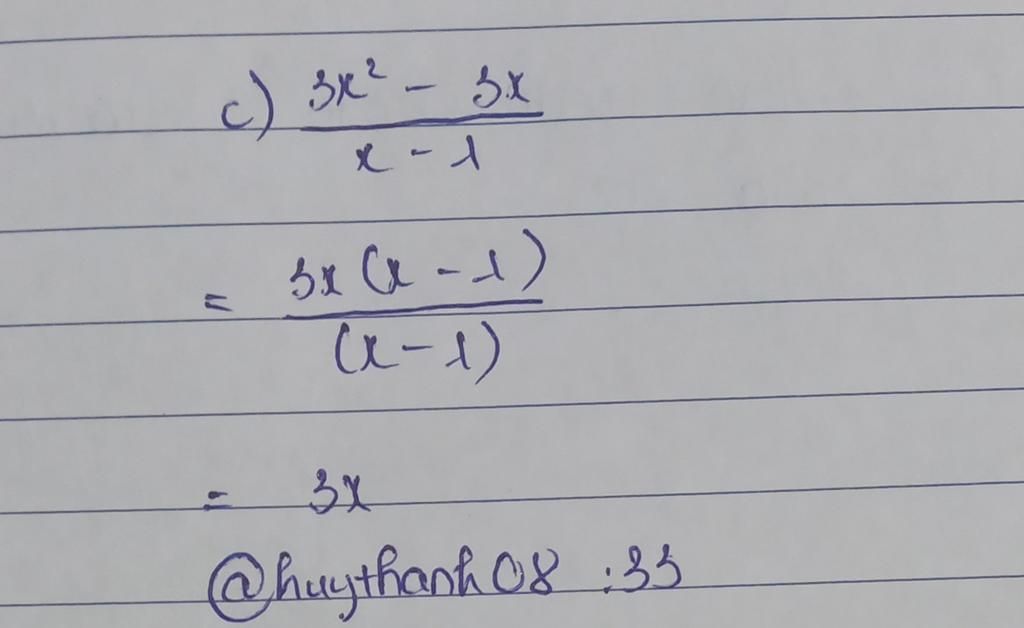 c) 3x² - 3x
x - 1
= 3x (x - 1)
(x - 1)
= 3x
@huythanh08 :33